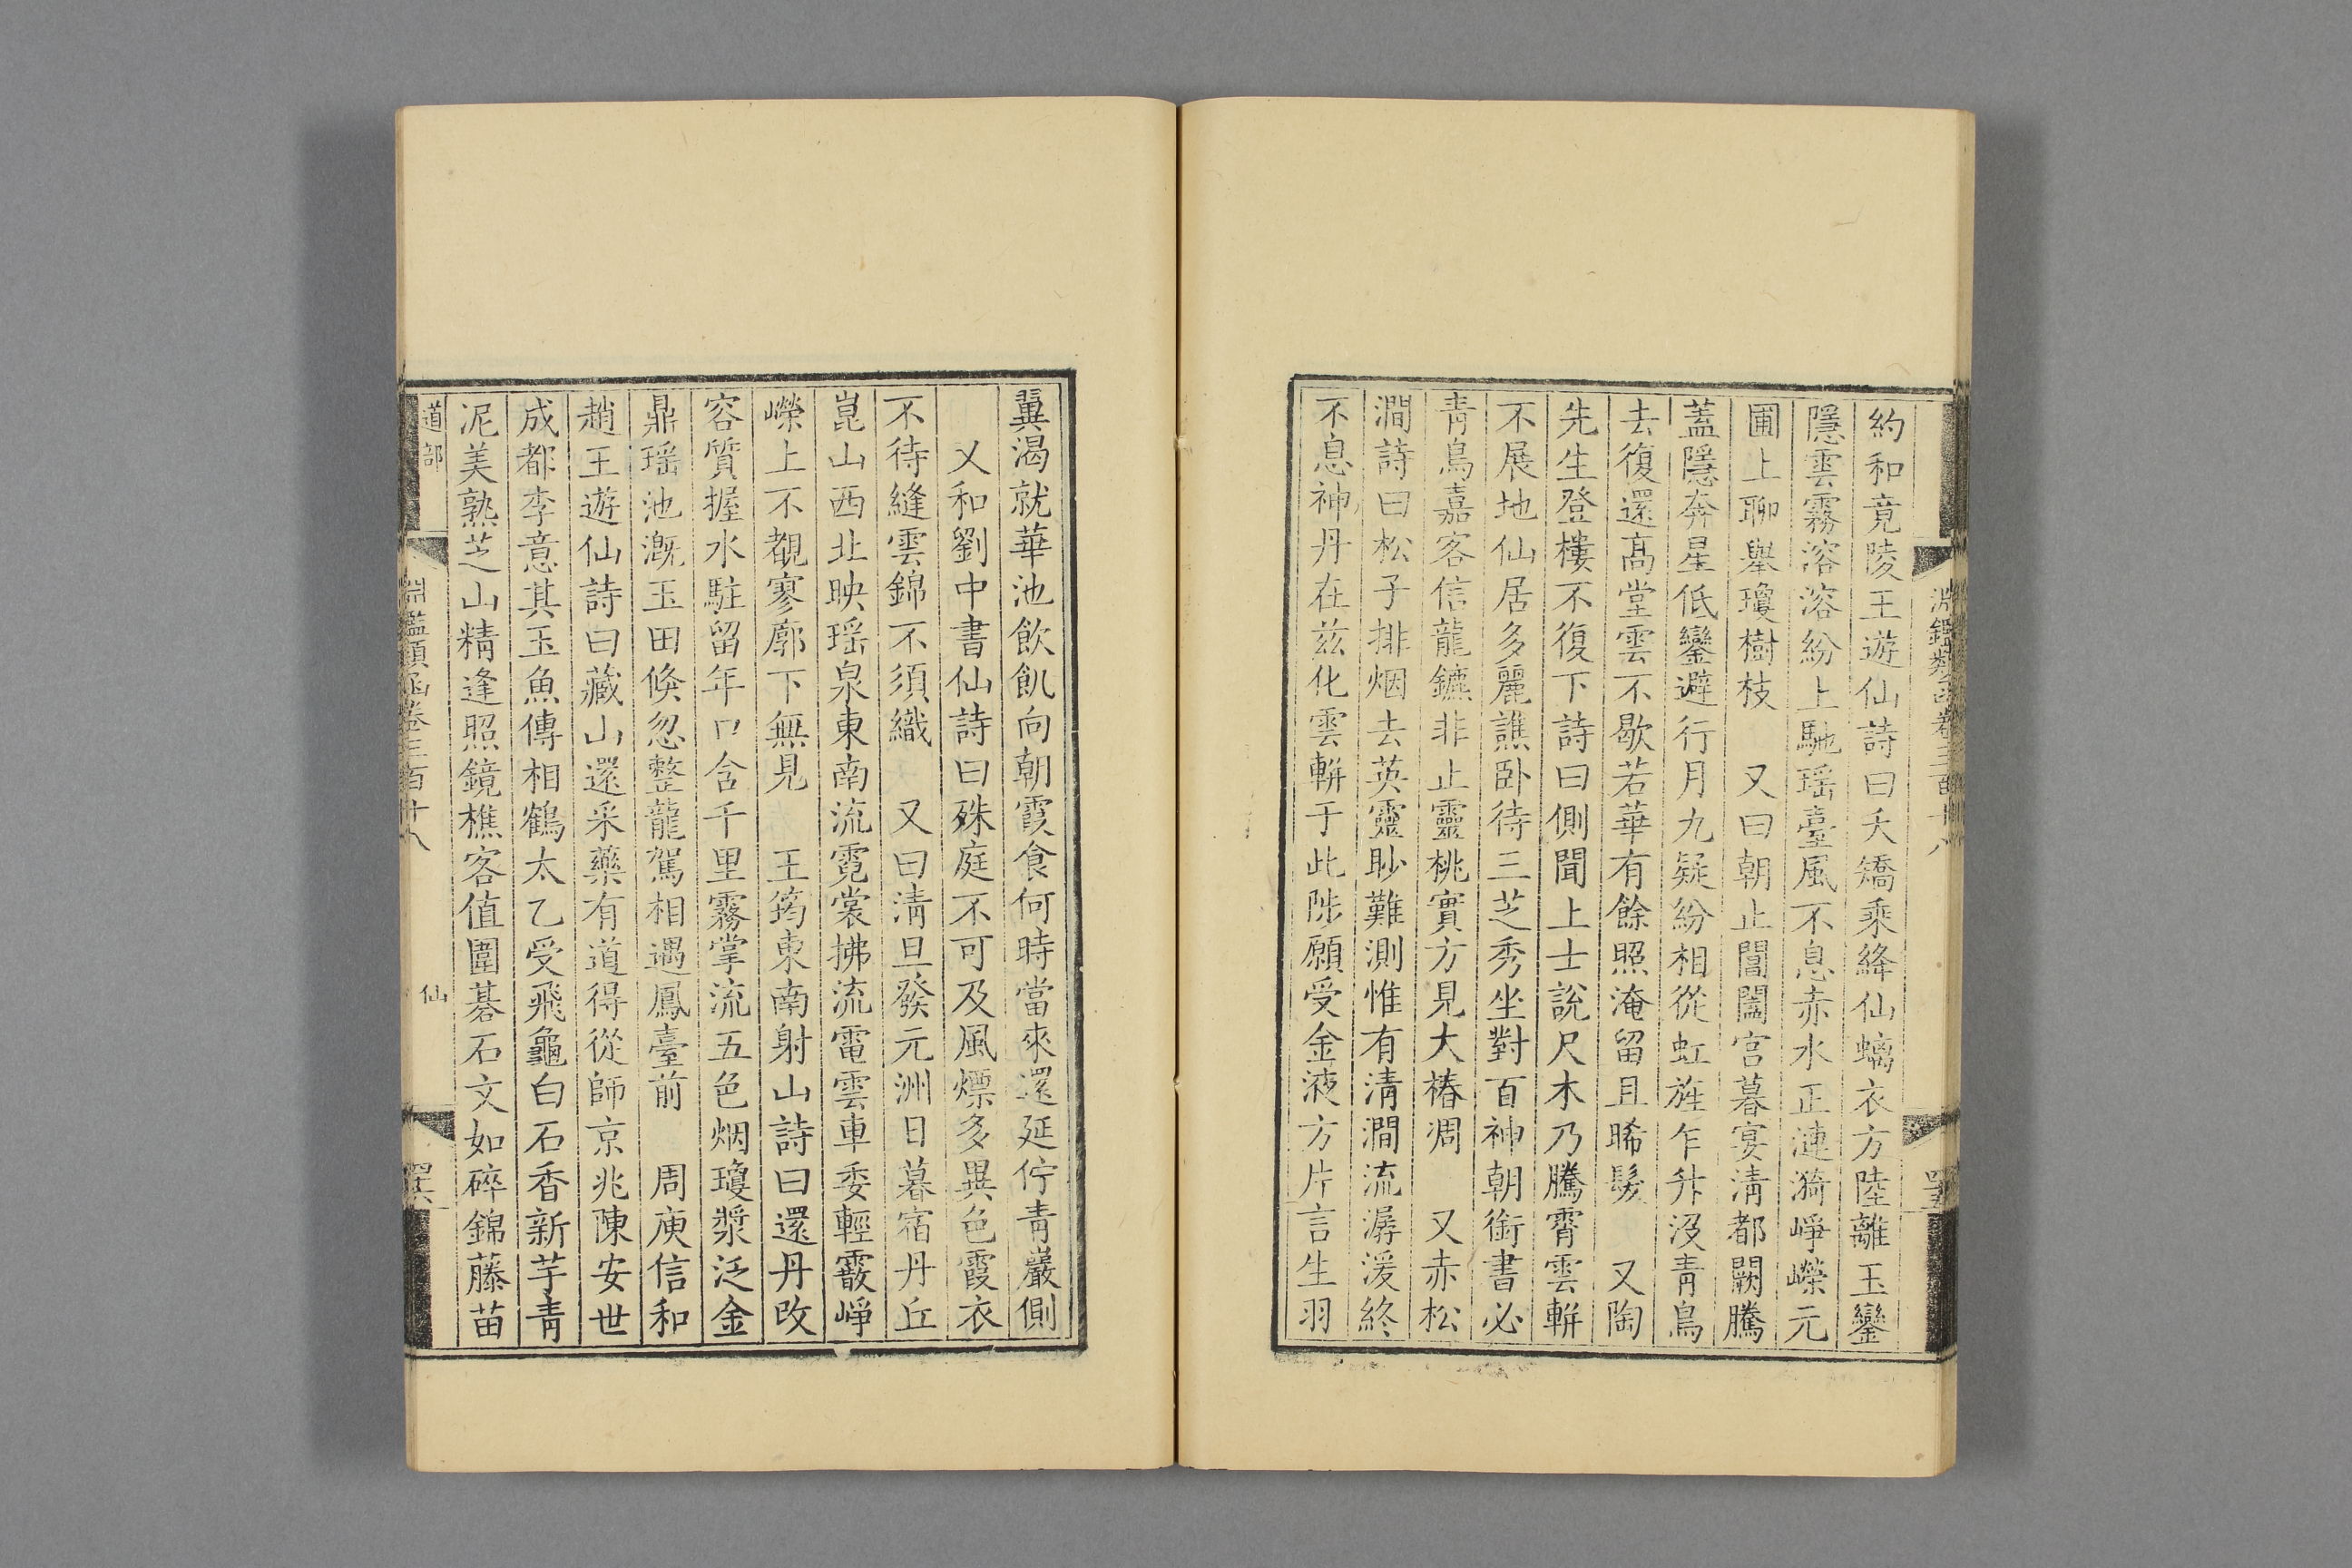 約和竟陵王遊仙詩曰夭矯乘絳仙螭衣方陸離玉鑾
隱雲霧溶溶紛上馳瑶臺風不息赤水正漣漪崢嶸元
圃上聊舉瓊樹枝　又曰朝止閶闔宫暮宴淸都闕騰
蓋隱奔星低鑾避行月九疑紛相從虹旌乍升沒青鳥
去復還高堂雲不歇若華有餘照淹留且晞髮　又陶
先生登樓不復下詩曰側聞上士說尺木乃騰霄雲輧
不展地仙居多麗譙卧待三芝秀坐對百神朝銜書必
靑鳥嘉客信龍鑣非止靈桃實方見大椿凋　又赤松
澗詩曰松子排烟去英靈眇難測惟有淸澗流潺湲終
不息神丹在兹化雲輧于此陟願受金液方片言生羽
翼渴就華池飲飢向朝霞食何時當來還延佇青巖側
又和劉中書仙詩曰殊庭不可及風熛多異色霞衣
不待縫雲錦不須織　又曰淸旦發元洲日暮宿丹丘
崑山西北映瑶泉東南流霓裳拂流電雲車委輕霰崢
嶸上不覩寥廓下無見　王筠東南射山詩曰還丹改
容質握水駐留年口含千里霧掌流五色烟瓊漿泛金
鼎瑶池漑玉田倏忽整龍駕相遇鳳臺前　周庾信和
趙王遊仙詩曰藏山還采藥有道得從師京兆陳安世
成都李意其玉魚傳相鶴太乙受飛龜白石香新芋青
泥美熟芝山精逢照鏡樵客值圍碁石文如碎錦藤苗
道部
淵鑑類函卷三百十八
仙